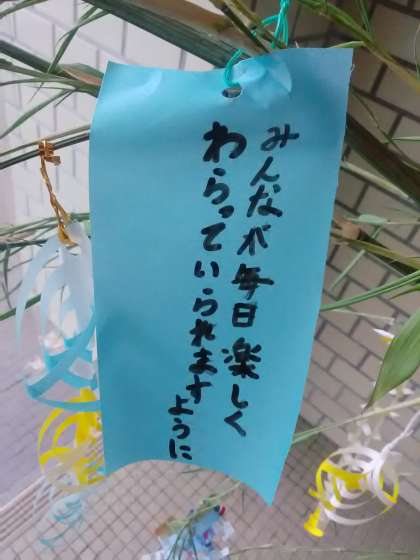 みんなが毎日楽しく
わらっていられます
ように